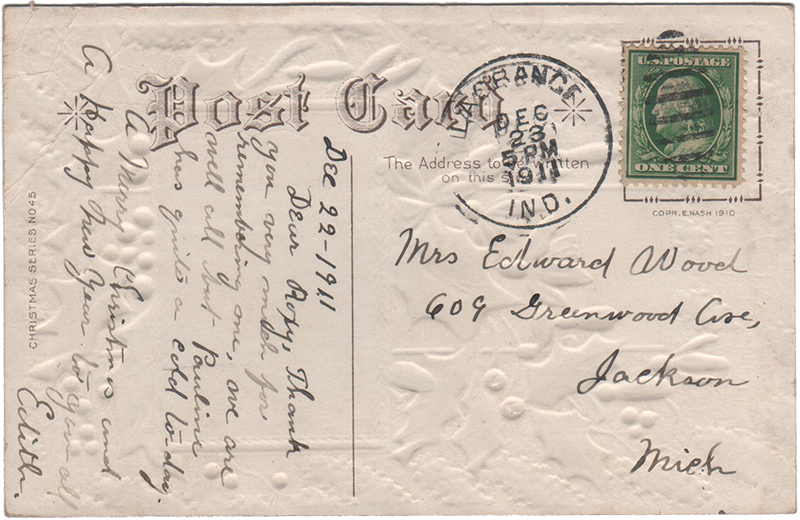 Post Card
The Address to be written
on this s
LAGRANGE
DEC
23
5 PM
1911
IND.
U.S. POSTAGE
ONE CENT
COPR. E. NASH 1910
CHRISTMAS SERIES NO 45
Dec 22-1911
Dear Roxy, Thank
you very much for
remembering me, we are
well all but Pauline
has quite a cold to-day.
A Merry Christmas and
A Happy New Year to you all
Edith.
Mrs Edward Wood
609 Greenwood Ave,
Jackson
Mich